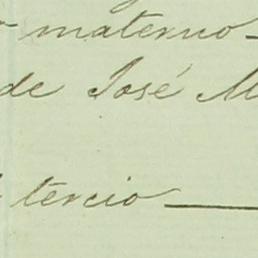 materno
de José M
tercio